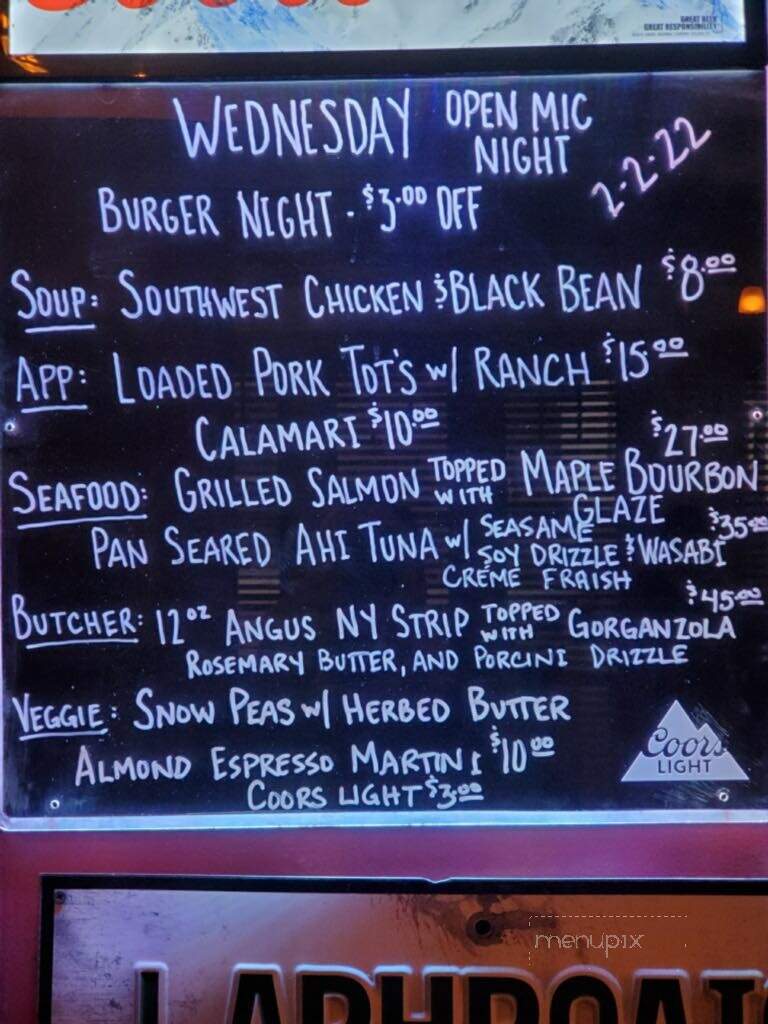 GREAT BEER
GREAT RESPONSIBILITY
WEDNESDAY OPEN MIC NIGHT
2-2-22
BURGER NIGHT - $3.00 OFF
SOUP: SOUTHWEST CHICKEN & BLACK BEAN $8.00
APP: LOADED PORK TOT'S w/ RANCH $15.00
CALAMARI $10.00
$27.00
SEAFOOD: GRILLED SALMON TOPPED WITH MAPLE BOURBON
GLAZE
PAN SEARED AHI TUNA w/ SEASAME $35.00
SOY DRIZZLE & WASABI
CRÉME FRAISH
$45.00
BUTCHER: 12oz ANGUS NY STRIP TOPPED WITH GORGANZOLA
ROSEMARY BUTTER, AND PORCINI DRIZZLE
VEGGIE: SNOW PEAS w/ HERBED BUTTER
ALMOND ESPRESSO MARTINI $10.00
COORS LIGHT $3.00
Coors
LIGHT
menupix
LAPHROAIG